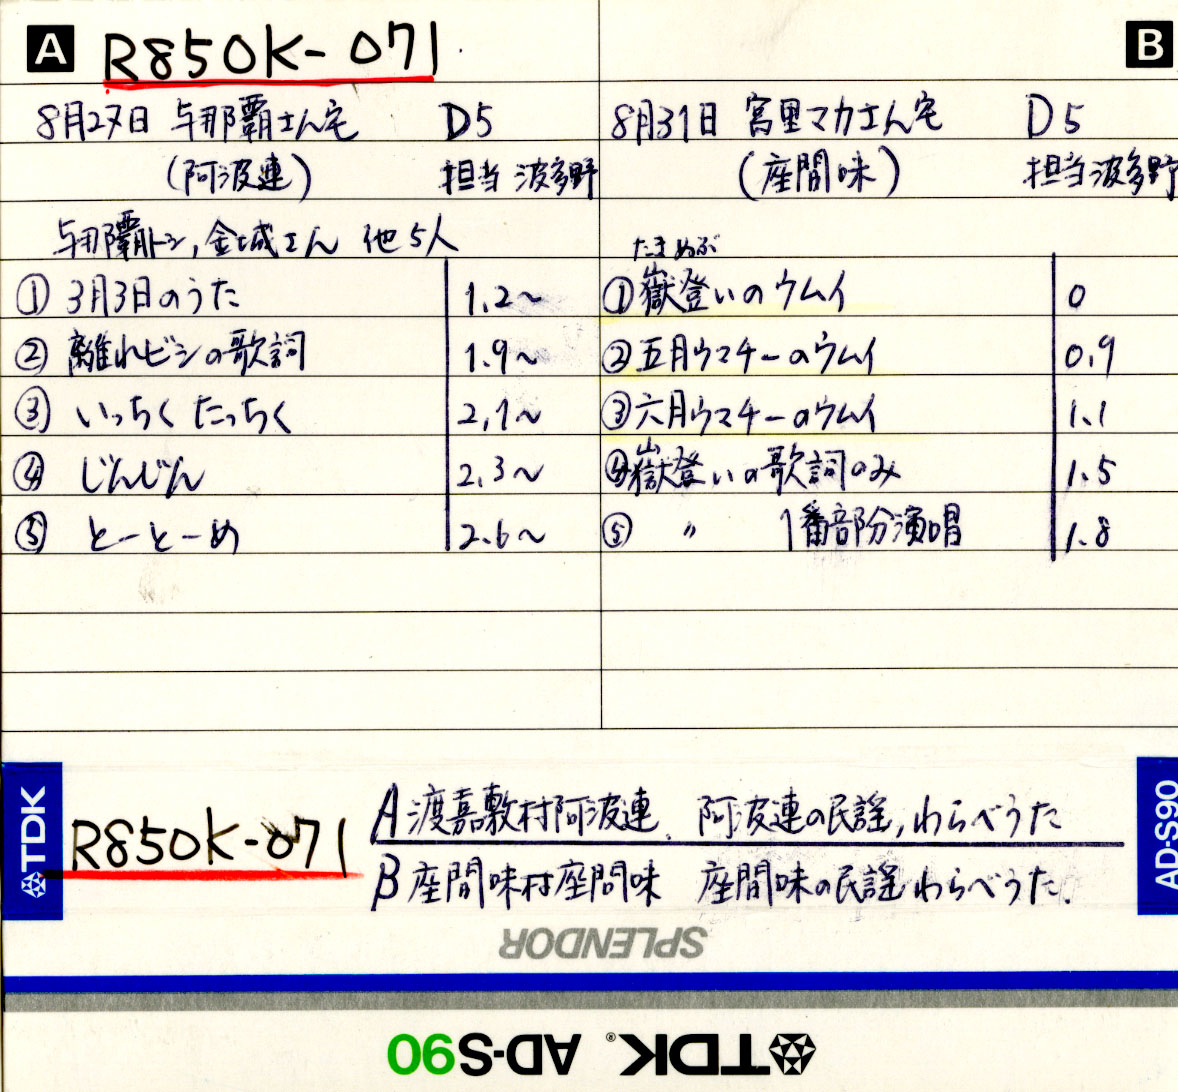 A R850K-071
8月27日 与那覇さん宅 D5
(阿波連) 担当 波多野
与那覇トシ,金城さん 他5人
① 3月3日のうた 1.2~
② 離れビシの歌詞 1.9~
③ いっちくたっちく 2.1~
④ じんじん 2.3~
⑤ とーとーめ 2.6~
B
8月31日 宮里マカさん宅 D5
(座間味) 担当波多野
たきぬぶ
①嶽登いのウムイ 0
②五月ウマチーのウムイ 0.9
③六月ウマチーのウムイ 1.1
④嶽登いの歌詞のみ 1.5
⑤ 〃 1番部分演唱 1.8
TDK
R850K-071
A 渡嘉敷村阿波連. 阿波連の民謡,わらべうた
B 座間味村座間味 座間味の民謡,わらべうた.
AD-S90
SPLENDOR
TDK® AD-S90